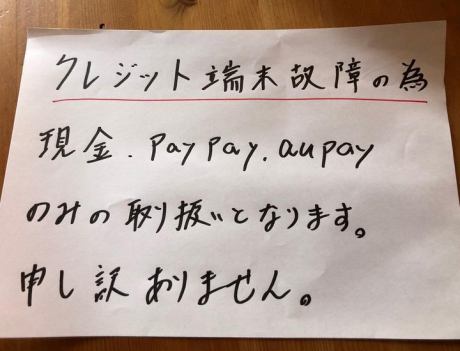 クレジット端末故障の為
現金.PayPay.aupay
のみの取り扱いとなります。
申し訳ありません。